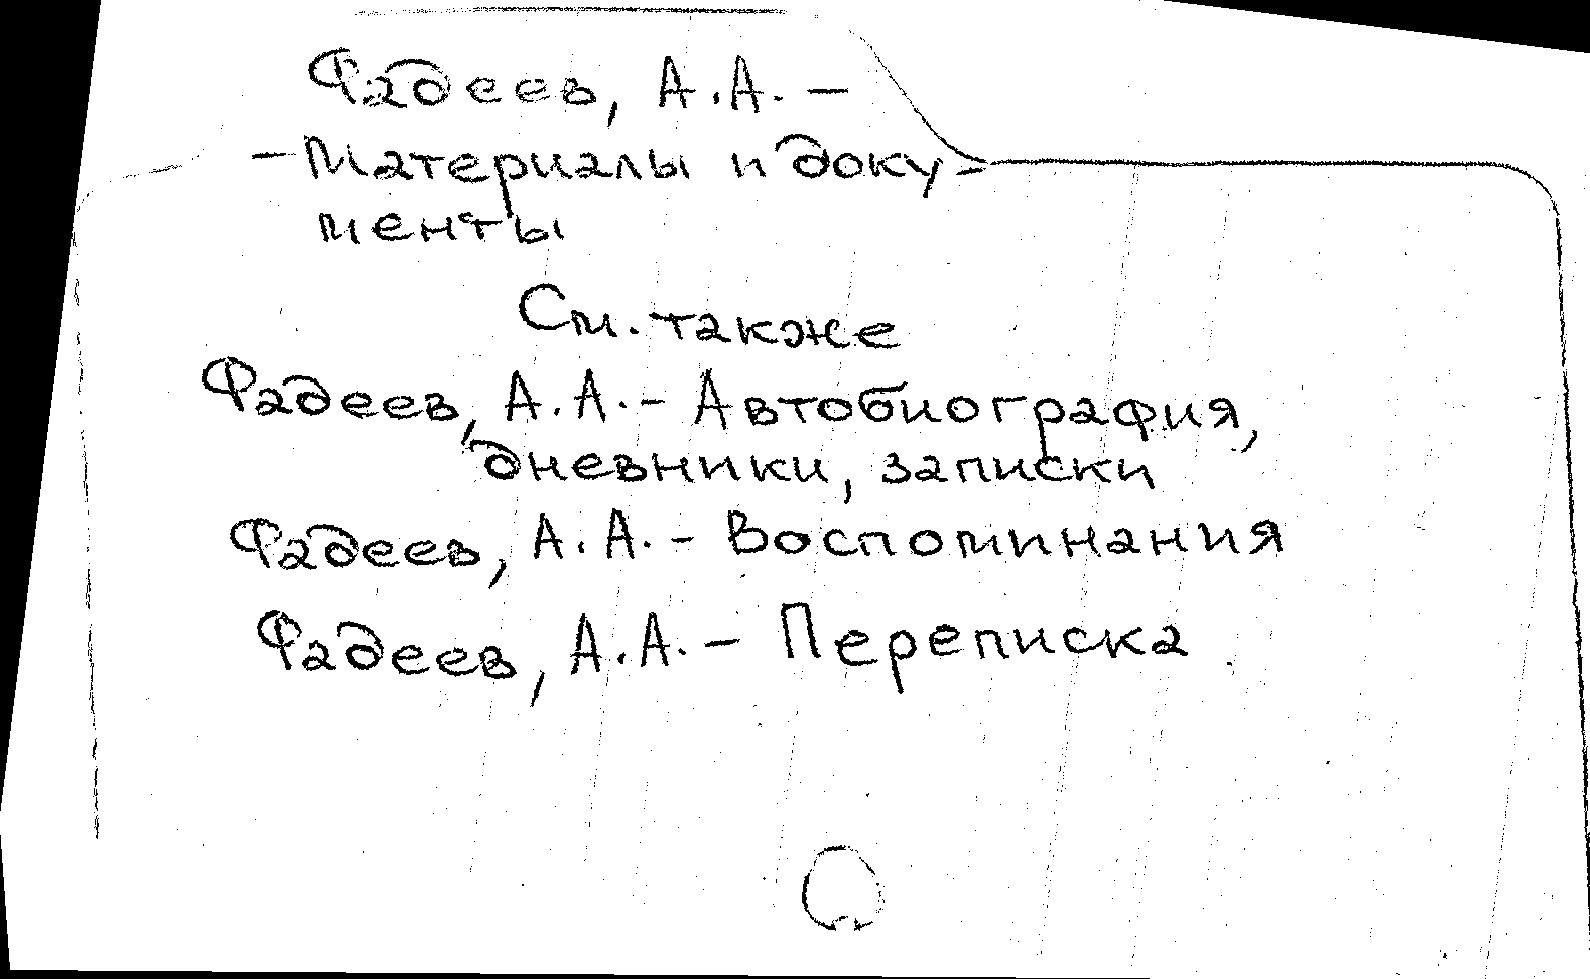 Фадеев, А.А. –
– Материалы и доку-
менты
См. также
Фадеев, А.А. - Автобиография,
дневники, записки
Фадеев, А.А. - Воспоминания
Фадеев, А.А. – Переписка